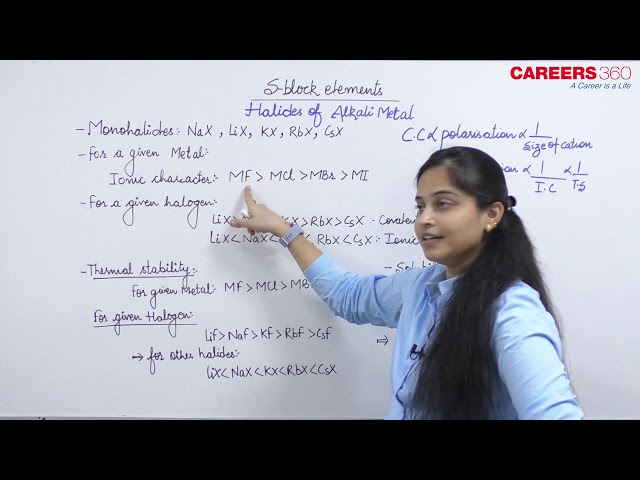 CAREERS360
A Career is a Life
S-block elements
Halides of Alkali Metal
- Monohalides: NaX, LiX, KX, RbX, CsX
C.C ∝ polarisation ∝ 1/size of cation
- for a given Metal:
Ionic character: MF > MCl > MBr > MI
∝ 1/I.C ∝ 1/T.S
- For a given halogen:
LiX > KX > RbX > CsX - Covalent
LiX < NaX < RbX < CsX : Ionic
- Thermal stability:
for given Metal: Mf > MCl > MBr
For given Halogen:
Lif > Naf > Kf > Rbf > Csf
→ for other halides:
LiX < NaX < KX < RbX < CsX